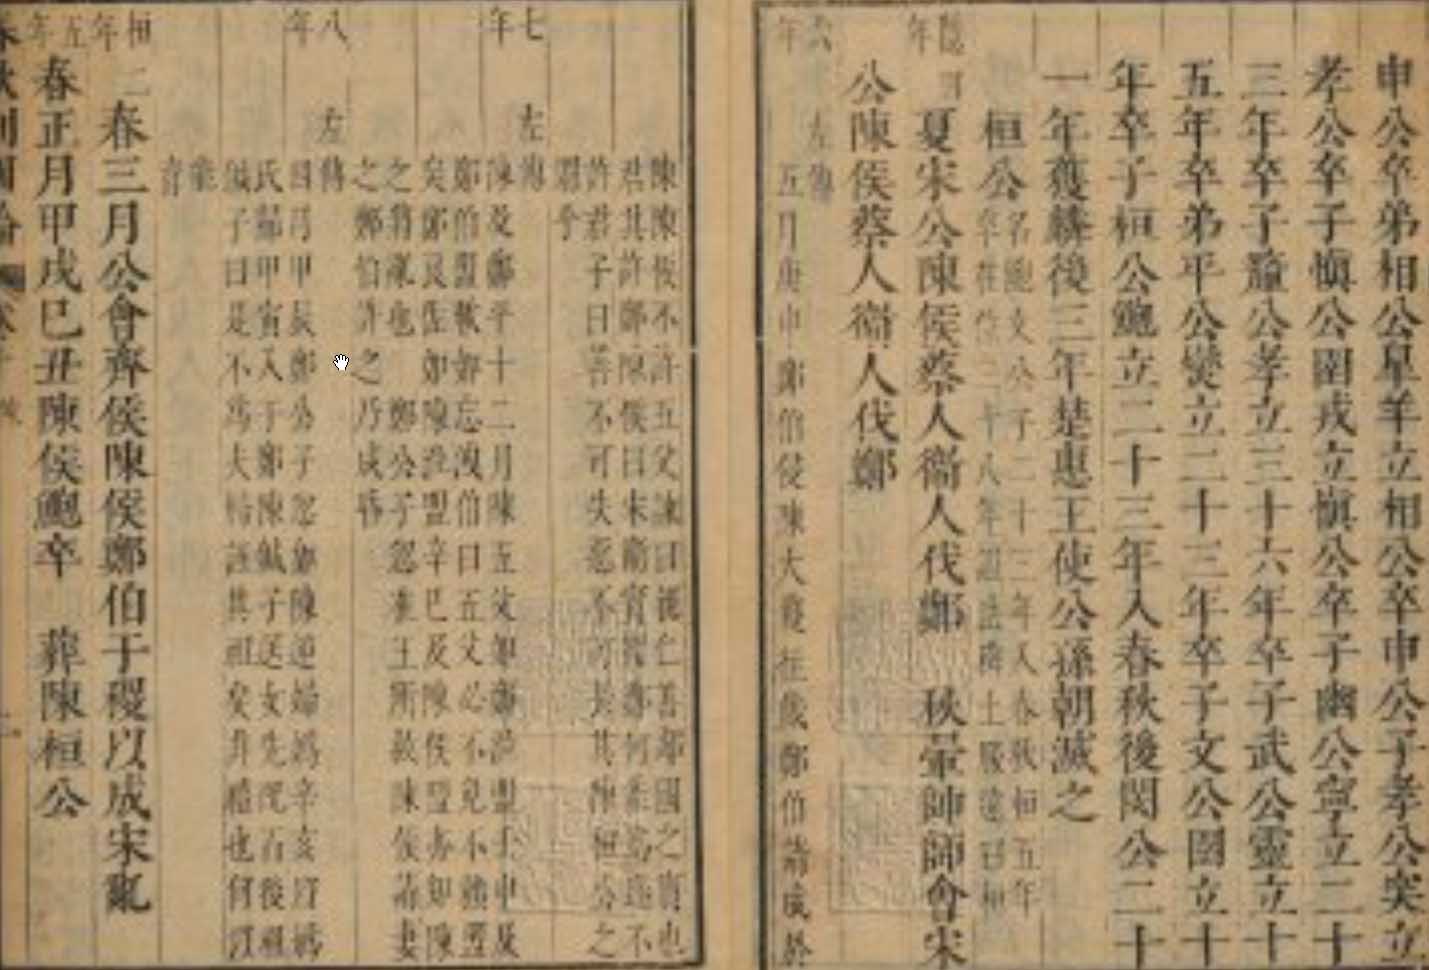 申公卒弟相公皐羊立相公卒申公子孝公突立
孝公卒子慎公圉戎立慎公卒子幽公寧立二十
三年卒子釐公孝立三十六年卒子武公靈立十
五年卒弟平公燮立二十三年卒子文公圉立十
年卒子桓公鮑立二十三年入春秋後閔公二十
一年獲麟後三年楚惠王使公孫朝滅之
桓公
名鮑文公子二十三年入春秋桓五年
卒在位三十八年諡法辟土服遠曰桓
隱四年
夏宋公陳侯蔡人衞人伐鄭 秋翬帥師會宋
公陳侯蔡人衞人伐鄭
六年
左傳
五月庚申鄭伯侵陳大獲往歲鄭伯請成於
陳陳侯不許五父諫曰親仁善鄰國之寶也
君其許鄭陳侯曰宋衞實難鄭何能爲遂不
許君子曰善不可失惡不可長其陳桓公之
謂乎
七年
左傳
陳及鄭平十二月陳五父如鄭涖盟壬申及
鄭伯盟歃如忘洩伯曰五父必不免不賴盟
矣鄭良佐如陳涖盟辛巳及陳侯盟亦知陳
之將亂也 鄭公子忽在王所故陳侯請妻
之鄭伯許之乃成昏
八年
左傳
四月甲辰鄭公子忽如陳逆婦嬀辛亥以嬀
氏歸甲寅入于鄭陳鍼子送女先配而後祖
鍼子曰是不爲夫婦誣其祖矣非禮也何以
能育
桓二年
春三月公會齊侯陳侯鄭伯于稷以成宋亂
五年
春正月甲戌巳丑陳侯鮑卒 葬陳桓公